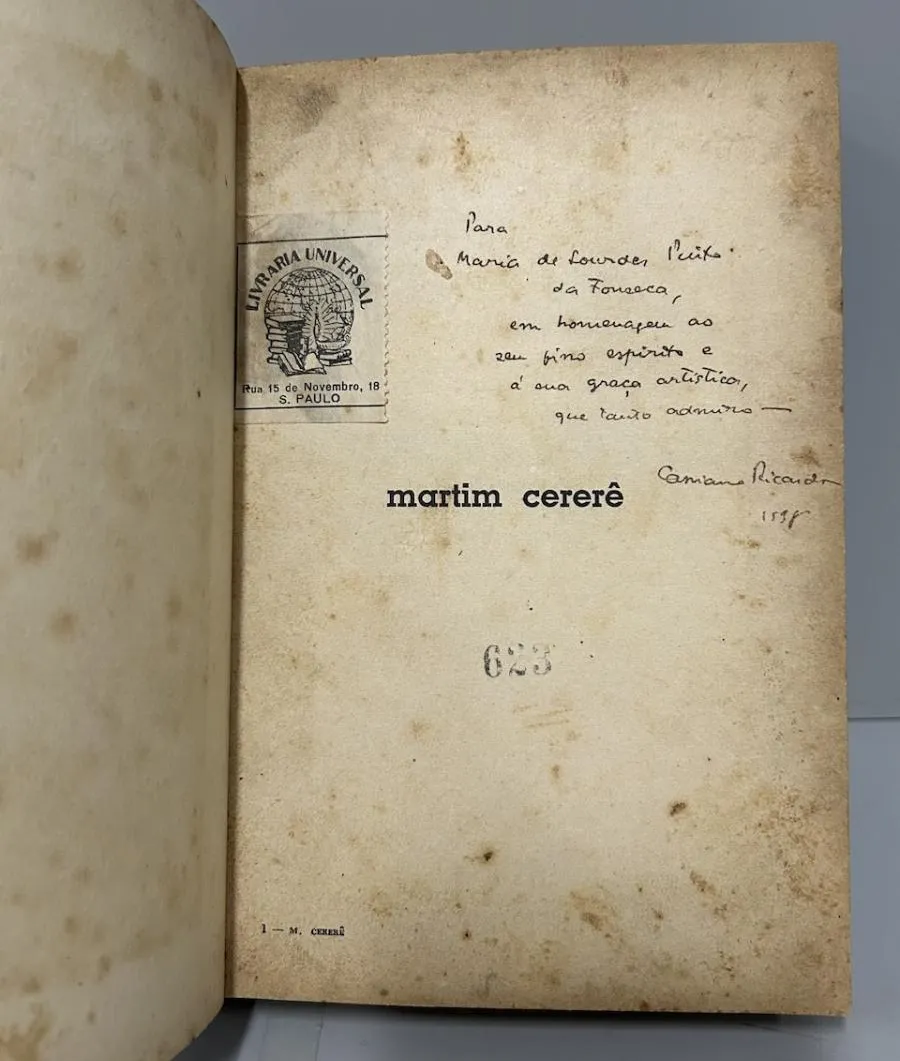 LIVRARIA UNIVERSAL
Rua 15 de Novembro, 18
S. PAULO
Para
Maria de Lourdes
da Fonseca,
em homenagem ao
seu fino espirito e
á sua graça artistica,
que tanto admiro —
Cassiano Ricardo
martim cererê
623
1 — M. CERERÊ